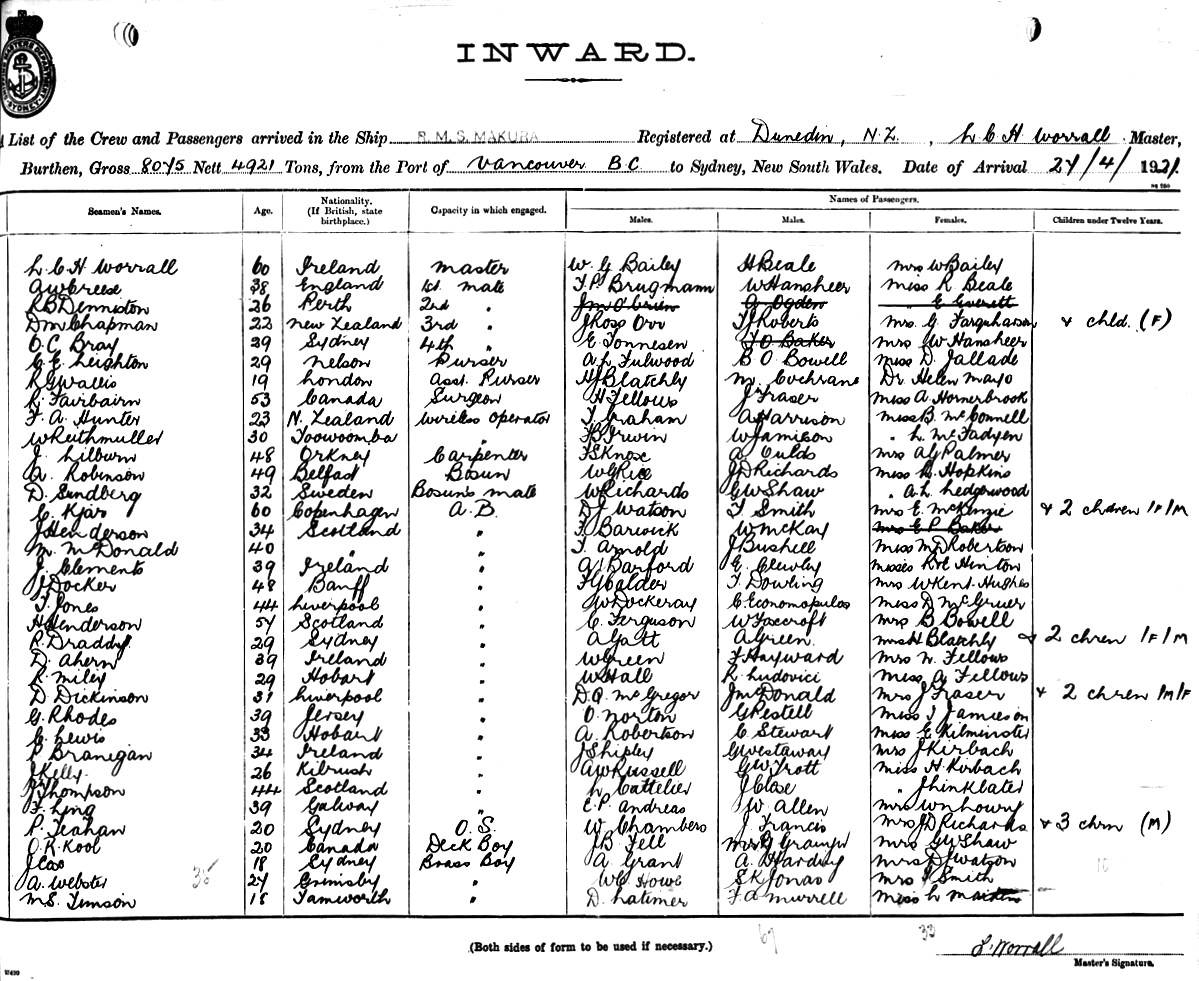 INWARD.
List of the Crew and Passengers arrived in the Ship R.M.S. MAKURA Registered at Dunedin, N.Z. , L C H Worrall Master,
Burthen, Gross 8075 Nett 4921 Tons, from the Port of Vancouver B C to Sydney, New South Wales. Date of Arrival 27/4/1921.
Seamen's Names. Age. Nationality. (If British, state birthplace.) Capacity in which engaged. Names of Passengers.
Males. Males. Females. Children under Twelve Years.
L C H Worrall 60 Ireland Master W G Bailey H Beale Mrs W Bailey
A W Creese 38 England 1st mate F P Brugmann W Hansheer Miss R Beale
R B Denniston 26 Perth 2nd " J M O'Brien G Ogden " E Everett
D M Chapman 22 New Zealand 3rd " J Ross Orr F J Roberts Mrs G Farquharson & chld. (F)
O C Bray 29 Sydney 4th " E Tonnesen F O Baker Mrs G W Hansheer
C E Leighton 29 Nelson Purser A L Fulwood B O Bowell Miss D Jallade
R G Wallis 19 London Asst. Purser H J Blatchly M Cochrane Dr Helen Mayo
R Fairbairn 53 Canada Surgeon H Fellows J Fraser Miss A Hornerbrook
F. A. Hunter 23 N. Zealand Wireless Operator T Graham A Harrison Miss B. McConnell
W Reithmuller 30 Toowoomba " F B Irwin W Jamieson " L. McFadyen
J Lilburn 48 Orkney Carpenter F S Knose A Oulds Mrs A G Palmer
A. Robinson 49 Belfast Bosun W G Rice J D Richards Miss H. Hopkins
D. Sundberg 32 Sweden Bosun's mate W Richards G W Shaw " A. L. Ledgerwood
C. Kjar 60 Copenhagen A.B. D J Watson T Smith Mrs E. McKenzie & 2 chdren 1F/1M
J Henderson 34 Scotland " F Barwick W McKay Mrs E P Baker
M. McDonald 40 " " T. Arnold J Bushell Miss M D Robertson
J. Clements 39 Ireland " A J Barford E. Clewley Misses R & E Hinton
J Docker 48 Banff " F G Calder T Dowling Mrs W Kent Hughes
T. Jones 44 Liverpool " J W Dockeray C. Economopulos Miss D McGruer
H Henderson 54 Scotland " C. Ferguson W Foxcroft Mrs B Bowell
R. Draddy 29 Sydney " A Galt A Green Mrs H Blatchly & 2 chren 1F/1M
D. Ahern 39 Ireland " W Green F Hayward Mrs N. Fellows
R. Miley 29 Hobart " W Hall R. Ludovici Miss A Fellows
D Dickinson 31 Liverpool " D. A. McGregor J McDonald Mrs J Fraser & 2 chren 1M/1F
G. Rhodes 39 Jersey " O Norton G Pestell Miss J Jamieson
G. Lewis 33 Hobart " A. Robertson C. Stewart Miss E Kilminster
P Branegan 34 Ireland " J Shipley G Westaway Mrs J Kirbach
J Kelly 26 Kilrush " A W Russell G W Trott Miss H. Kirbach
J Thompson 44 Scotland " L Cattelier J Close " J Linklater
F. Ling 39 Galway " E. P. Andreas J W. Allen
P. Teahan 20 Sydney O.S. W Chambers J. Francis Mrs J D Richards & 3 chrn (M)
O. R. Kool 20 Canada Deck Boy J B Fell Mrs G W Shaw
J Cox 18 Sydney Brass Boy A. Grant A. Hardy Mrs D J Watson
A. Webster 24 Grimsby " W C Howe S K Jonas Mrs T Smith
M S. Timson 18 Tamworth " D. Latimer F A Murrell Miss L
35 10
(Both sides of form to be used if necessary.) 69 33 L Worrall
Master's Signature.